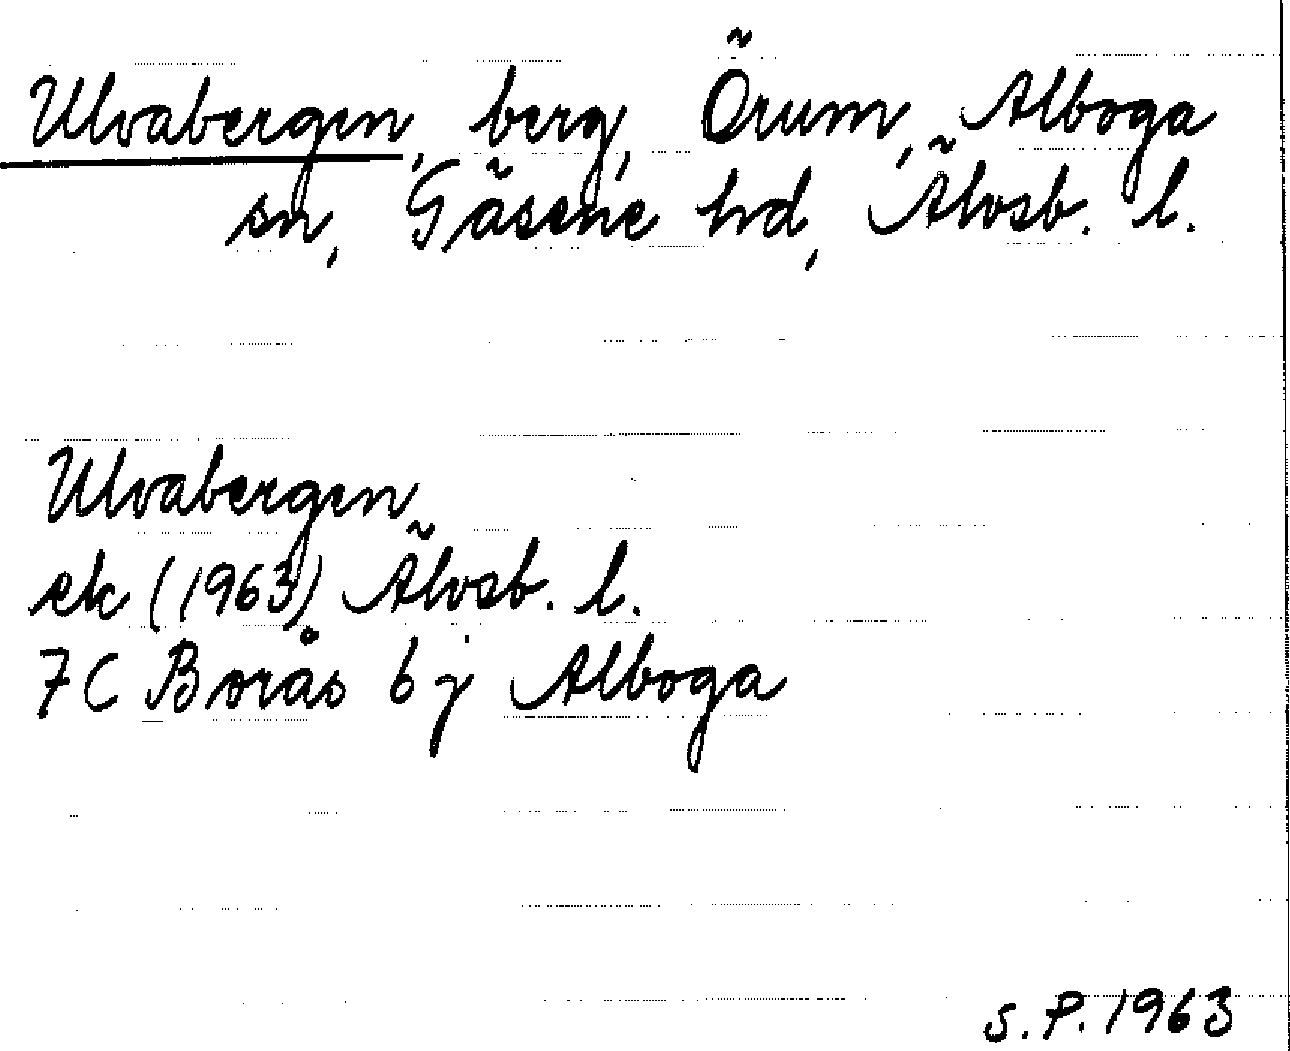 Ulvabergen, berg, Örum, Alboga
sn, Gäsene hd, Älvsb. l.
Ulvabergen
ek (1963) Älvsb. l.
7C Borås 6j Alboga
S.P. 1963